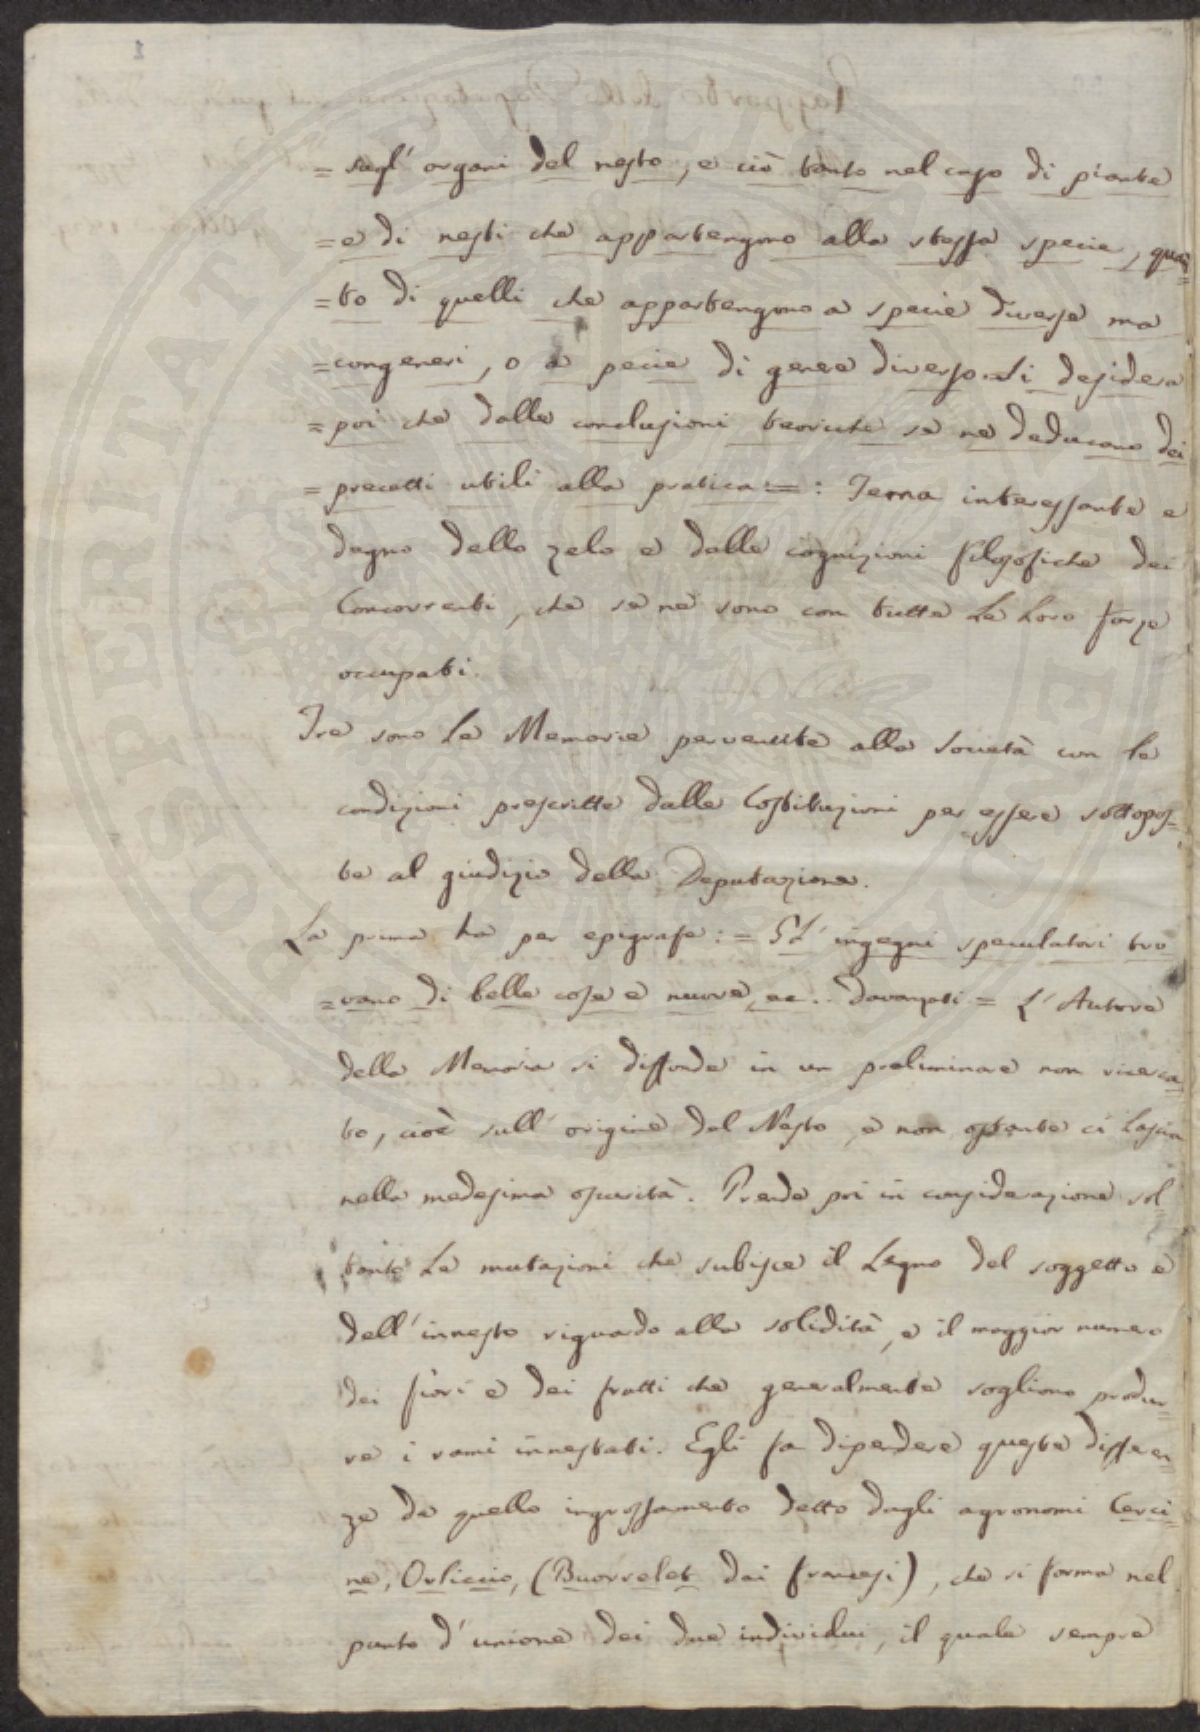 = sugl' organi del nesto, e ciò tanto nel caso di piante
= e di nesti che appartengono alla stessa specie, quan
= to di quelli che appartengono a specie diverse ma
= congeneri, o a pecie di genere diverso. Si desidera
= poi che dalle conclusioni teoriche se ne deducano dei
= precetti utili alla pratica: = : Tema interessante e
degno dello zelo e dalle cognizioni filosofiche dei
Concorrenti, che se ne sono con tutte le loro forze
occupati.
Tre sono le Memorie pervenute alla Società con le
condizioni prescritte dalle Costituzioni per essere sottopos=
te al giudizio della Deputazione.
La prima ha per epigrafe: = Gl' ingegni speculatori tro
= vano di belle cose e nuove, ec.. Davanzati = L' Autore
della Memoria si diffonde in un preliminare non ricerca
to, cioè sull' origine del Nesto, e non ostante ci lascia
nella medesima oscurità. Prende poi in considerazione sol=
tanto le mutazioni che subisce il legno del soggetto e
dell' innesto riguardo alla solidità, e il maggior numero
dei fiori e dei frutti che generalmente sogliono produr=
re i rami innestati. Egli fa dipendere queste differen=
ze da quello ingrossamento detto dagli agronomi Cerci=
ne, Orliccio, (Buorrelet dai francesi), che si forma nel
punto d' unione dei due individui, il quale sempre